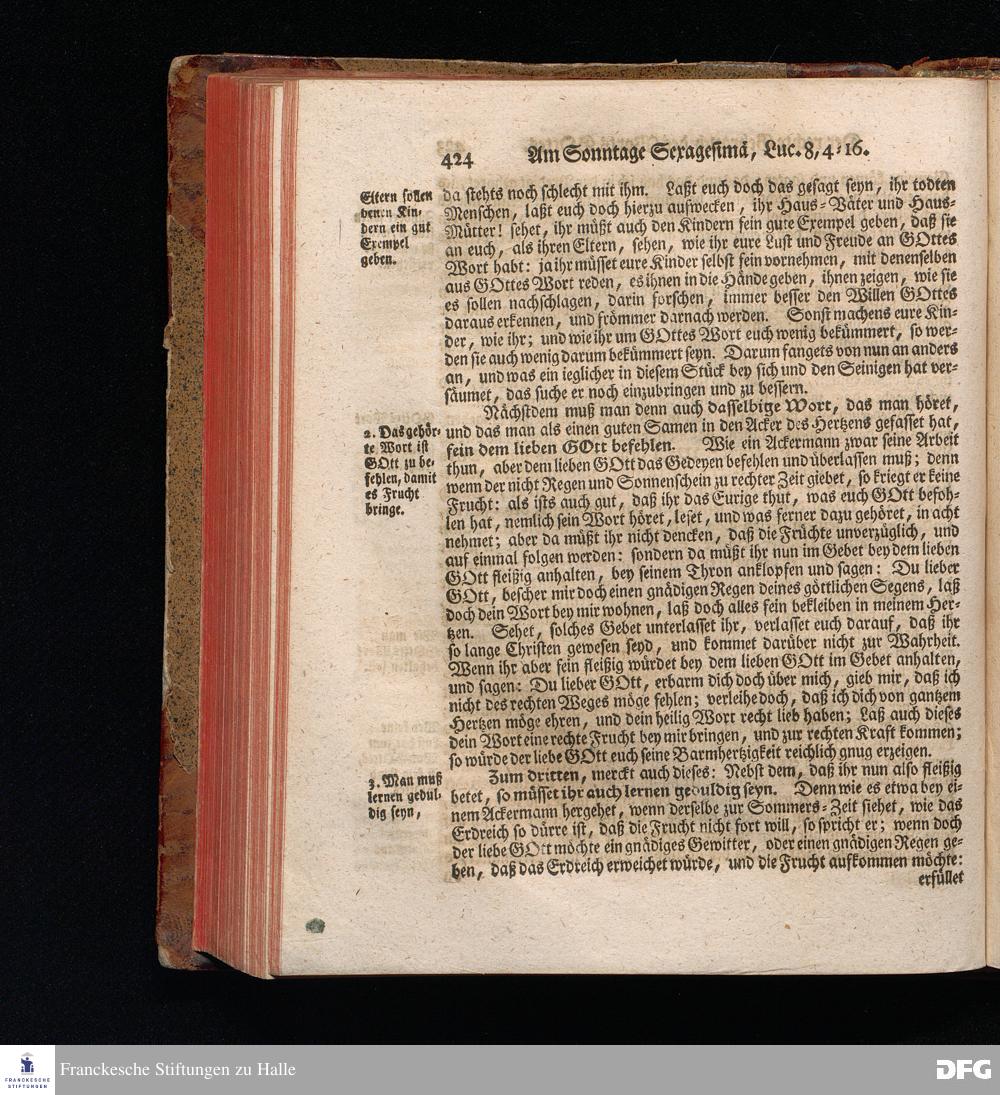 424 Am Sonntage Sexagesimä, Luc. 8, 4-16.
Eltern sollen
denen Kin-
dern ein gut
Exempel
geben.
da stehts noch schlecht mit ihm. Laßt euch doch das gesagt seyn, ihr todten
Menschen, laßt euch doch hierzu aufwecken, ihr Haus-Väter und Haus-
Mütter! sehet, ihr müßt auch den Kindern fein gute Exempel geben, daß sie
an euch, als ihren Eltern, sehen, wie ihr eure Lust und Freude an GOttes
Wort habt: ja ihr müsset eure Kinder selbst fein vornehmen, mit denenselben
aus GOttes Wort reden, es ihnen in die Hände geben, ihnen zeigen, wie sie
es sollen nachschlagen, darin forschen, immer besser den Willen GOttes
daraus erkennen, und frömmer darnach werden. Sonst machens eure Kin-
der, wie ihr; und wie ihr um GOttes Wort euch wenig bekümmert, so wer-
den sie auch wenig darum bekümmert seyn. Darum fangets von nun an anders
an, und was ein ieglicher in diesem Stück bey sich und den Seinigen hat ver-
säumet, das suche er noch einzubringen und zu bessern.
2. Das gehör-
te Wort ist
GOtt zu be-
fehlen, damit
es Frucht
bringe.
Nächstdem muß man denn auch dasselbige Wort, das man höret,
und das man als einen guten Samen in den Acker des Hertzens gefasset hat,
fein dem lieben GOtt befehlen. Wie ein Ackermann zwar seine Arbeit
thun, aber dem lieben GOtt das Gedeyen befehlen und überlassen muß; denn
wenn der nicht Regen und Sonnenschein zu rechter Zeit giebet, so kriegt er keine
Frucht: als ists auch gut, daß ihr das Eurige thut, was euch GOtt befoh-
len hat, nemlich sein Wort höret, leset, und was ferner dazu gehöret, in acht
nehmet; aber da müßt ihr nicht dencken, daß die Früchte unverzüglich, und
auf einmal folgen werden: sondern da müßt ihr nun im Gebet bey dem lieben
GOtt fleißig anhalten, bey seinem Thron anklopfen und sagen: Du lieber
GOtt, bescher mir doch einen gnädigen Regen deines göttlichen Segens, laß
doch dein Wort bey mir wohnen, laß doch alles fein bekleiben in meinem Her-
tzen. Sehet, solches Gebet unterlasset ihr, verlasset euch darauf, daß ihr
so lange Christen gewesen seyd, und kommet darüber nicht zur Wahrheit.
Wenn ihr aber fein fleißig würdet bey dem lieben GOtt im Gebet anhalten,
und sagen: Du lieber GOtt, erbarm dich doch über mich, gieb mir, daß ich
nicht des rechten Weges möge fehlen; verleihe doch, daß ich dich von gantzem
Hertzen möge ehren, und dein heilig Wort recht lieb haben; Laß auch dieses
dein Wort eine rechte Frucht bey mir bringen, und zur rechten Kraft kommen;
so würde der liebe GOtt euch seine Barmhertzigkeit reichlich gnug erzeigen.
3. Man muß
lernen gedul-
dig seyn,
Zum dritten, merckt auch dieses: Nebst dem, daß ihr nun also fleißig
betet, so müsset ihr auch lernen geduldig seyn. Denn wie es etwa bey ei-
nem Ackermann hergehet, wenn derselbe zur Sommers-Zeit siehet, wie das
Erdreich so dürre ist, daß die Frucht nicht fort will, so spricht er; wenn doch
der liebe GOtt möchte ein gnädiges Gewitter, oder einen gnädigen Regen ge-
ben, daß das Erdreich erweichet würde, und die Frucht aufkommen möchte:
erfüllet
FRANCKESCHE
STIFTUNGEN
Franckesche Stiftungen zu Halle
DFG